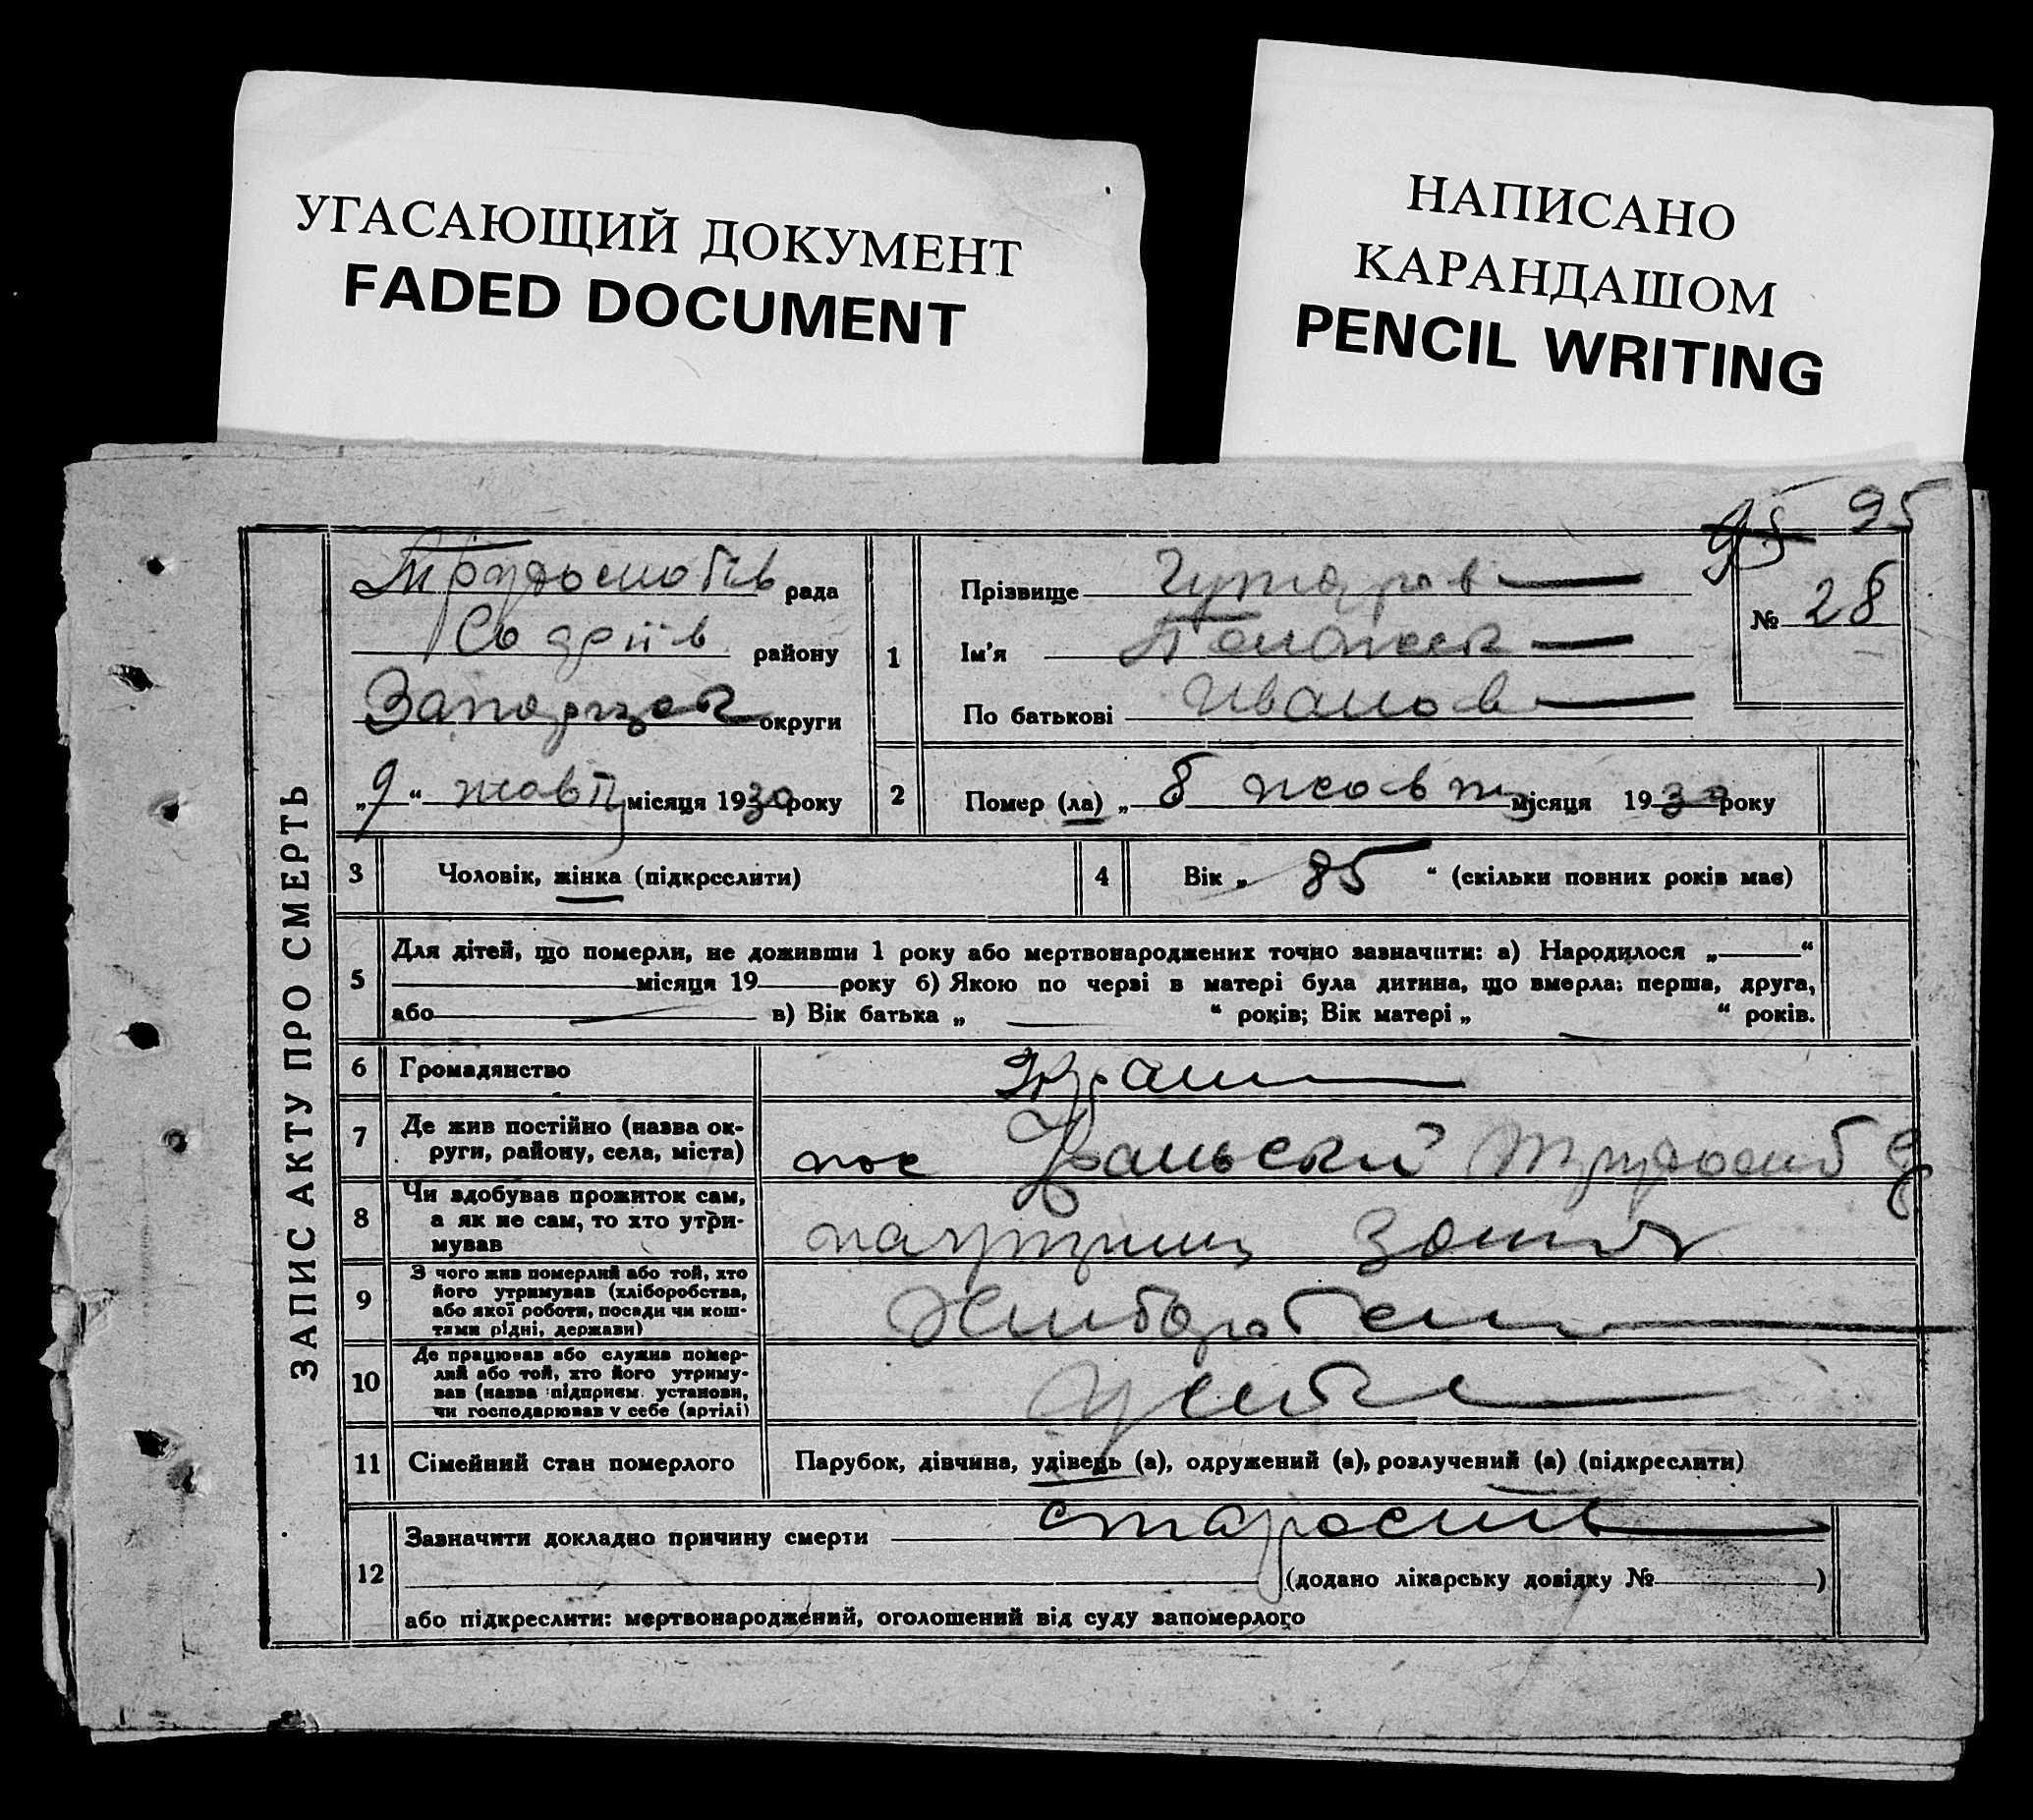 УГАСАЮЩИЙ ДОКУМЕНТ
FADED DOCUMENT
НАПИСАНО
КАРАНДАШОМ
PENCIL WRITING
95 95
ЗАПИС АКТУ ПРО СМЕРТЬ
рада
району
округи
„9“ жовт місяця 1930 року
1
Прізвище
Ім'я
По батькові Иванов
№ 28
2
Помер (ла) „8 жовт місяця 1930 року
3 Чоловік, жінка (підкреслити)
4 Вік „ 85 “ (скільки повних років має)
5
Для дітей, що померли, не доживши 1 року або мертвонароджених точно зазначити: а) Народилося „ “
місяця 19 року б) Якою по черзі в матері була дитина, що вмерла: перша, друга,
або в) Вік батька „ “ років; Вік матері „ “ років.
6 Громадянство
7 Де жив постійно (назва ок-
руги, району, села, міста)
пос
8 Чи здобував прожиток сам,
а як не сам, то хто утри-
мував
9 З чого жив померлий або той, хто
його утримував (хліборобства,
або якої роботи, посади чи кош-
тами рідні, держави)
10 Де працював або служив помер-
лий або той, хто його утриму-
вав (назва підприєм. установи,
чи господарював у себе (артілі)
11 Сімейний стан померлого
Парубок, дівчина, удівець (а), одружений (а), розлучений (а) (підкреслити)
12
Зазначити докладно причину смерти старость
(додано лікарську довідку № )
або підкреслити: мертвонароджений, оголошений від суду запомерлого